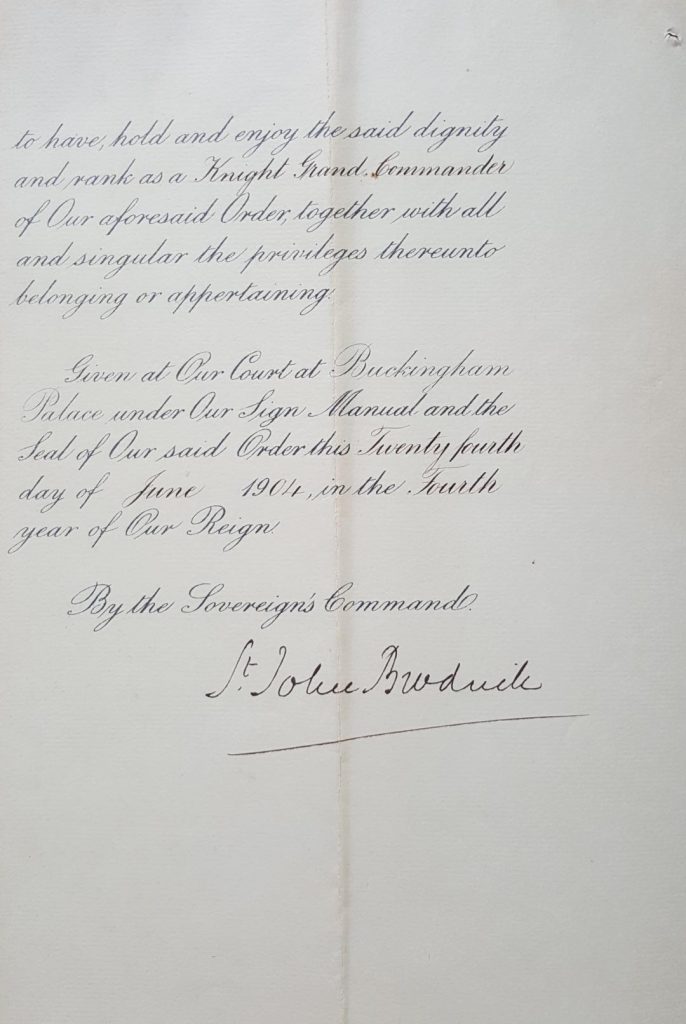 to have, hold and enjoy the said dignity
and rank as a Knight Grand Commander
of Our aforesaid Order, together with all
and singular the privileges thereunto
belonging or appertaining.
Given at Our Court at Buckingham
Palace under Our Sign Manual and the
Seal of Our said Order this Twenty fourth
day of June 1904, in the Fourth
year of Our Reign.
By the Sovereign's Command.
St. John Brodrick